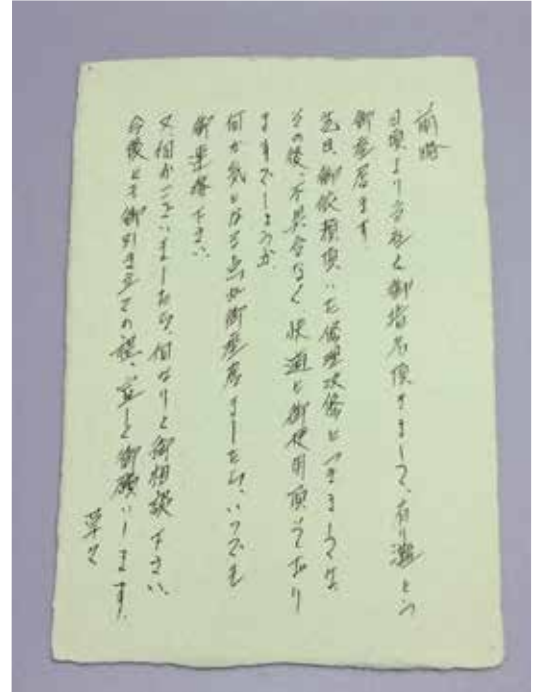 前略
日頃より当社を御指名頂きまして、有り難とう
御座居ます。
先日、御依頼頂いた修理次修につきましては
その後、不具合なく快適に御使用頂いており
ますでしょうか
何か気になる点が御座居ましたら、いつでも
御連絡下さい。
又、何かございましたら、何なりと御相談下さい。
今後とも御引き立ての程、宜しく御願いします。
草々